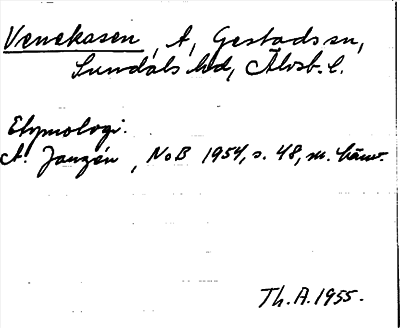 Venekasen, A, Gestads sn,
Sundals hd, Älvsb. l.
Etymologi:
A. Janzén, NoB 1954, s. 48, m. hänv.
Th. A. 1955.